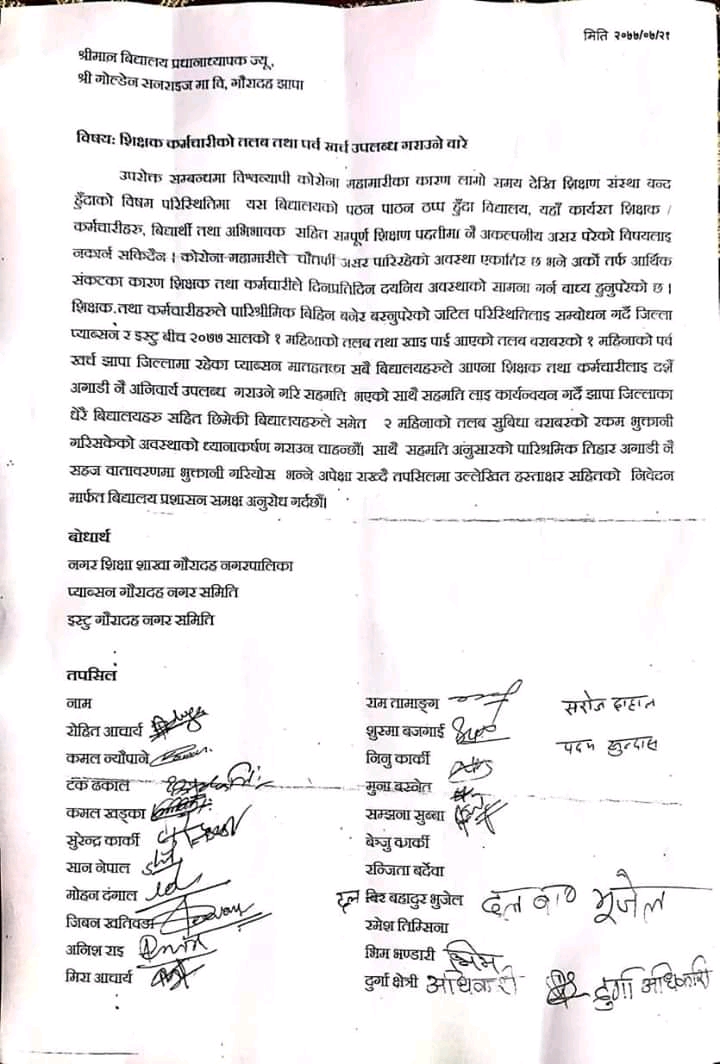 मिति २०७७/०७/२१
श्रीमान बिद्यालय प्रधानाध्यापक ज्यू,
श्री गोल्डेन सनराइज मा वि, गौरादह झापा
विषय: शिक्षक कर्मचारीको तलब तथा पर्व खर्च उपलब्ध गराउने बारे
उपरोक्त सम्बन्धमा विश्वव्यापी कोरोना महामारीका कारण लामो समय देखि शिक्षण संस्था बन्द
हुँदाको विषम परिस्थितिमा यस बिद्यालयको पठन पाठन ठप्प हुँदा विद्यालय, यहाँ कार्यरत शिक्षक /
कर्मचारीहरु, बिद्यार्थी तथा अभिभावक सहित सम्पूर्ण शिक्षण पद्दतीमा नै अकल्पनीय असर परेको विषयलाइ
नकार्न सकिदैन । कोरोना महामारीले चौतर्फी असर पारिरहेको अवस्था एकातिर छ भने अर्को तर्फ आर्थिक
संकटका कारण शिक्षक तथा कर्मचारीले दिनप्रतिदिन दयनिय अवस्थाको सामना गर्न बाध्य हुनुपरेको छ ।
शिक्षक तथा कर्मचारीहरुले पारिश्रीमिक बिहिन बनेर बस्नुपरेको जटिल परिस्थितिलाइ सम्बोधन गर्दै जिल्ला
प्याब्सन र इस्टु बीच २०७७ सालको १ महिनाको तलब तथा खाइ पाई आएको तलब बराबरको १ महिनाको पर्व
खर्च झापा जिल्लामा रहेका प्याब्सन मातहतका सबै बिद्यालयहरुले आफ्ना शिक्षक तथा कर्मचारीलाइ दशैँ
अगाडी नै अनिवार्य उपलब्ध गराउने गरि सहमति भएको साथै सहमति लाइ कार्यन्वयन गर्दै झापा जिल्लाका
धेरै बिद्यालयहरु सहित छिमेकी बिद्यालयहरुले समेत २ महिनाको तलब सुबिधा बराबरको रकम भुक्तानी
गरिसकेको अवस्थाको ध्यानाकर्षण गराउन चाहन्छौं। साथै सहमति अनुसारको पारिश्रमिक तिहार अगाडी नै
सहज वातावरणमा भुक्तानी गरियोस भन्ने अपेक्षा राख्दै तपसिलमा उल्लेखित हस्ताक्षर सहितको निवेदन
मार्फत बिद्यालय प्रशासन समक्ष अनुरोध गर्दछौं।
बोधार्थ
नगर शिक्षा शाखा गौरादह नगरपालिका
प्याब्सन गौरादह नगर समिति
इस्टु गौरादह नगर समिति
तपसिल
नाम
रोहित आचार्य
कमल न्यौपाने
टंक ढकाल
कमल खड्का
सुरेन्द्र कार्की
सान नेपाल
मोहन दंगाल
जिबन खतिवडा
अनिश राइ
मिरा आचार्य
राम तामाङ्ग
शुस्मा बजगाई
निनु कार्की
मुना बस्नेत
सम्झना सुब्बा
बेन्जु कार्की
रन्जिता बर्देवा
दल बिर बहादुर भुजेल दल ब० भूजेल
रमेश तिम्सिना
भिम भण्डारी भिम
दुर्गा क्षेत्री अधिकारी दुर्गा अधिकारी
सरोज दाहाल
पदम